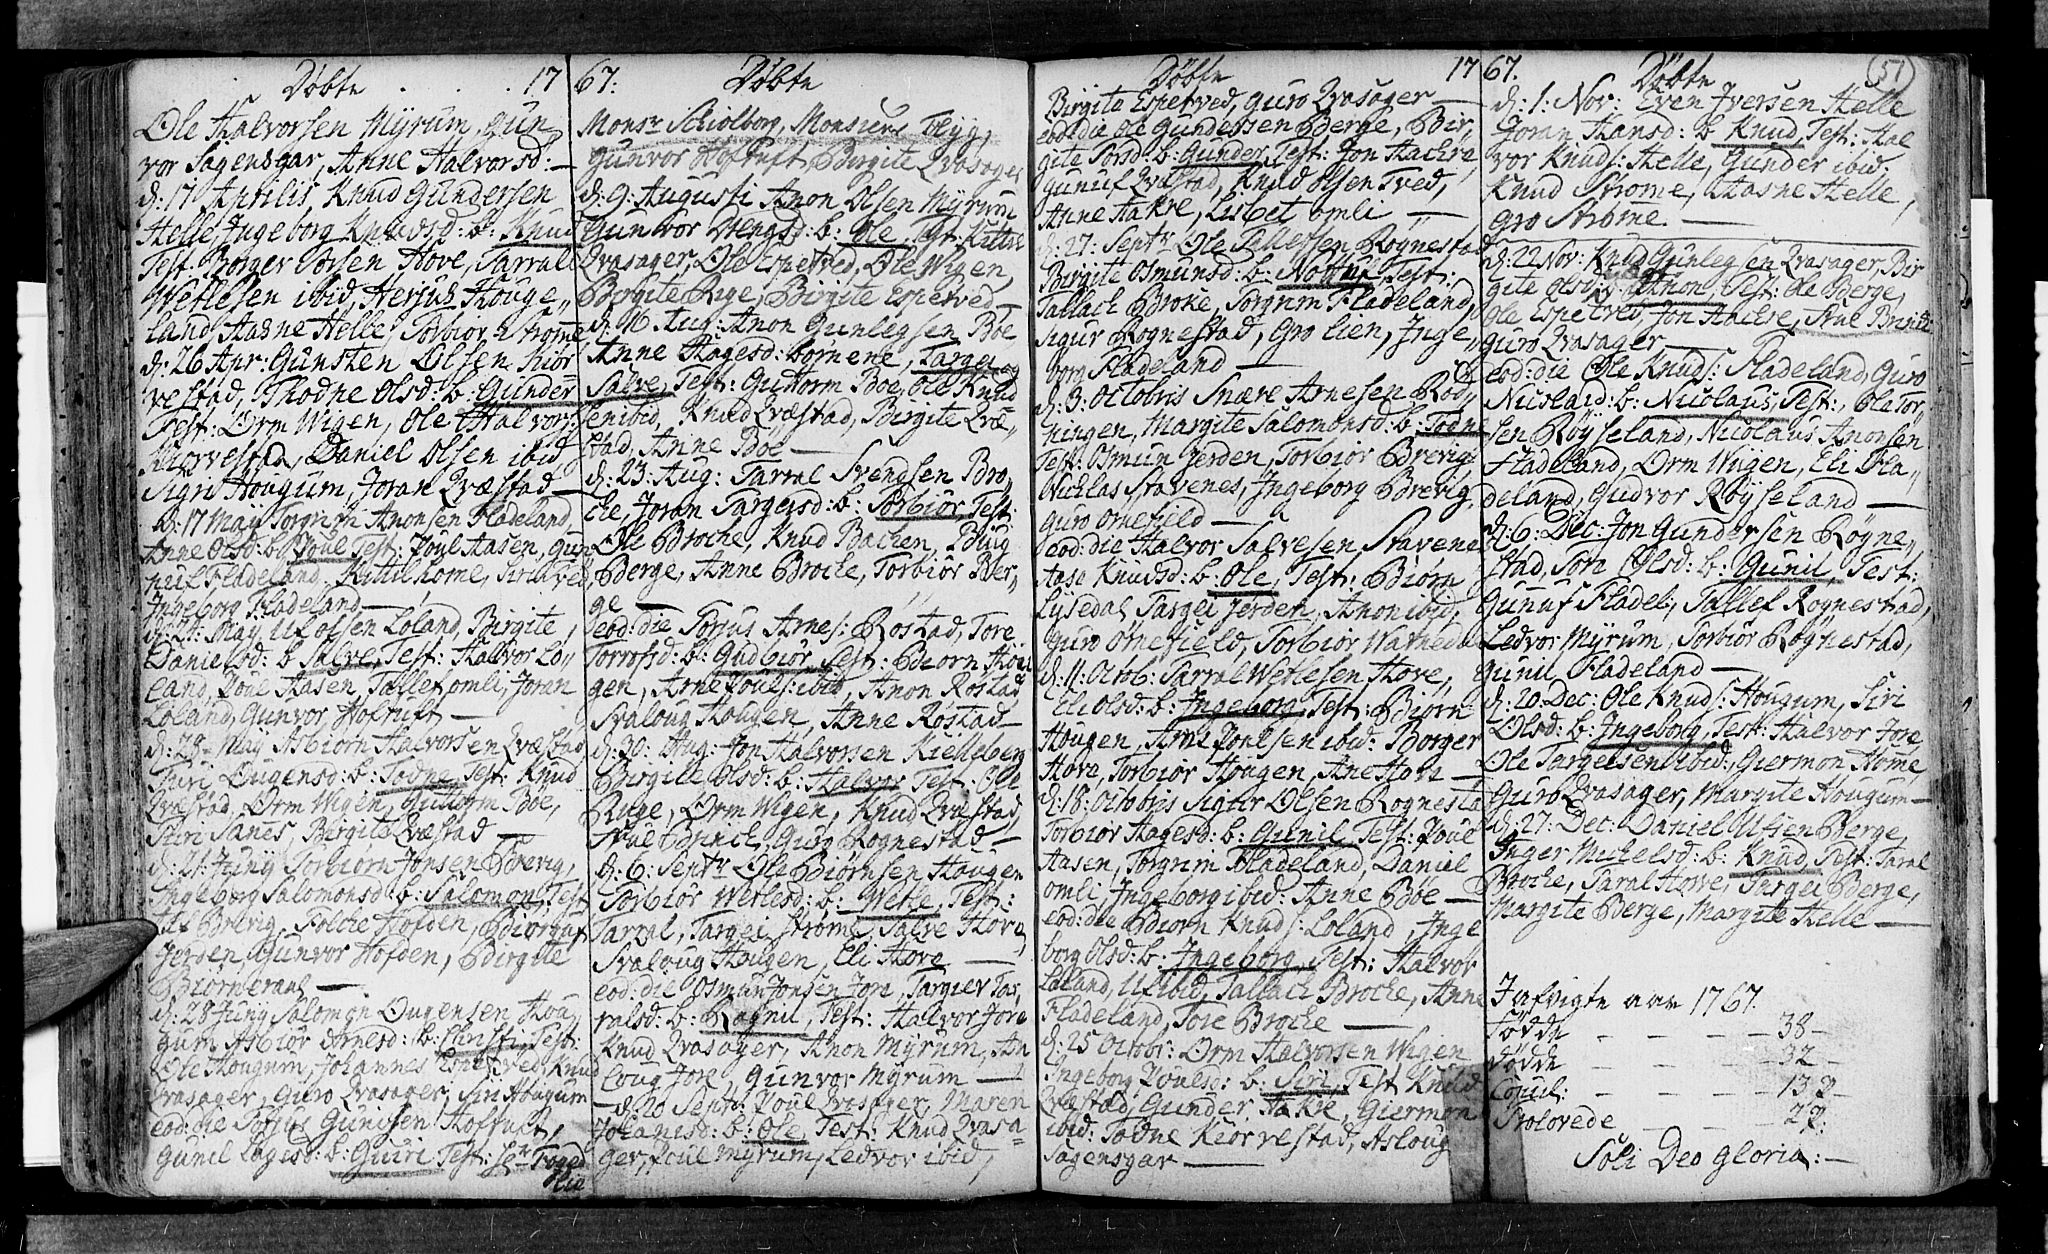 Døbte . . . 17
Ole Halvorsen Myrum, Gun
vor Sagensgar, Anne Halvorsd: —
d: 17 Aprilis, Knud Gundersen
Helle, Ingeborg Knudsd: b: Knud
Test: Børger Hove, Tarral
Wetlesen ibid, Houge„
land, Aasne Helle, Torbiør Strøme
d: 26 Apr: Gunsten Olsen Kiør
vestad, Thodne Olsd: b: Gunder
Test: Orm Wigen, Ole Halvors:
Kiørvestad, Daniel Olsen ibid
Sigri Hougum, Joran Qvæstad —
d: 17 Maÿ Torgrim Anonsen Fladeland,
Anne Olsd: b: Poul Test: Poul Aasen, Gun
nuf Fladeland, Kittil home,
Ingeborg Fladeland —
Maÿ Uf Olsen Loland, Birgite
Danielsd: b Salve, Test: Halvor Lo„
land, Poul Aasen, Tallef omli, Joran
Loland, Gunvor Hofruft —
d: 28 Maÿ Asbiørn Halvorsen Qvæstad
Siri Ougensd: b: Todne Test: Knud
Qvæstad, Orm Wigen, Guttorm Bøe,
Siri Sanes Birgite Qvæstad —
d: 21 Juny Torbiørn Jonsen Brevig,
Ingeborg Salomonsd b: Salomon, Test
Brevig, Hofden, Biørguf
Jerden, Gunvor Hofden, Birgite
Biørneraas —
d: 28 Juny Salomon Ougensen Hou„
gum Asbiør Arnesd: b: Christi, Test:
Ole Hougum, Johannes Espetved, Knud
Qvasager, Guro Qvasager, Siri Hougum
eod: die Torjus Gunifsen Hoffuft,
Gunil Aagesd: b. Guiri Test: Sr Tyged
lie
67: Døbte
Monsr Schiolborg, Monsieur Flyg,
Gunvor Hoffuft, Birgite Qvasager
d: 9: Augusti Anon Olsen Myrum
Gunvor Wengsd: b: Ole Tst: Kittil
Qvasager, Ole Espetved, Ole Wigen,
Birgite Rige, Birgite Espetved —
d: 16 Aug: Anon Gunlegsen Bøe
Anne Aagesd: børnene, Targei og
Salve, Test: Guttorm Bøe, Ole Knud
sen ibid, Knud Qvæstad, Birgite Qvæ„
stad, Anne Bøe —
d: 23 Aug: Tarral Svendsen Bro„
che, Joran Targeisd: b: Torbiør Test:
Ole Broche, Knud Bachen,
Berge, Anne Broche, Torbiør Ber„
ge —
eod: die Torjus Arnes: Røstad, Tore
Torrofsd: b: Gudbiør Test: Biørn Hou
gen, Arne Pouls: ibid, Anon Røstad
Svaloug Hougen, Anne Røstad —
d: 30: Aug: Jon Halvorsen Kielleberg
Birgite Olsd: b: Halvor Test: Ole
Ruge, Orm Wigen, Knud Qvæstad,
Guro Rognestad —
d: 6: Septr Ole Biørnsen Hougen
Torbiør Wetlesd: b: Wetle, Test:
Tarral, Targei Strøme, Salve Hove,
Svaloug Hougen, Eli Hove —
eod: die Osmun Jonsen Jore, Targier Tar„
ralsd: b: Ragnil, Test: Halvor Jore
Knud Qvasager, Anon Myrum, As
loug Jore, Gunvor Myrum —
d: 20 Sept: Poul Qvasager, Maren
Johansd: b: Ole, Test: Knud Qvasa-
ger, Poul Myrum, Ledvor ibid,
Døbte 17
Birgite Espetved, Guro Qvasager —
eod: die Ole Gundersen Berge, Bir„
gite Tord b: Gunder Test: Jon Haakre,
Gunuf Qvæstad, Knud Olsen Tved,
Anne Aakre, Lisbet omli —
d: 27: Septr Ole Tallefsen Rognestad
Birgite Osmunsd: b: Test:
Tallach Broke, Torgrim Fladeland,
Sigur Rognestad, Gro Lien, Inge„
borg Fladeland —
d: 3: Octobris Snære Arnesen Rod„
ningen, Margite Salomonsd: b: Todne
Test: Osmun Jerden, Torbiør Brevig
Nicklas Stavenes, Ingeborg Brevig,
Guro Ornefield —
eod: die Halvor Salvesen Stavenes
Aase Knudsd: b: Ole, Test: Biørn
Lysedal, Targei Jerden, Anon ibid,
Guro Ornefield, Torbiør Watnedal
d: 11 Octob: Tarral Wetlesen Hove,
Eli Olsd: b: Ingeborg, Test: Biørn
Hougen, Arne Poulsen ibid: Borger
Hove, Torbiør Hougen, Ane Hove —
d: 18: Octobris Sigur Olsen Rognesta
Torbiør Aagesd: b: Gunil Test: Poul
Aasen, Torgrim Fladeland, Daniel
omli, Ingeborg ibid: Anne Bøe —
eod: die Biørn Knuds: Loland, Inge
borg Olsd: b: Ingeborg, Test: Halvor
Loland, Uf ibid, Tallach Broche, Anne
Fladeland, Tore Broche —
d: 25 Octobr: Orm Halvorsen Wigen
Ingeborg Poulsd: b: Siri, Test Knud
Qvæstad, Gunder Aakre, Giermon
ibid: Todne Kiørvestad, Asloug
Sagensgar —
67. Døbte 51
d: 1: Nov: Even Iversen Helle
Joran Hansd: b: Knud, Test: Hal
vor Knuds: Helle, Gunder ibid:
Knud Strøme, Aasne Helle,
Gro Strøme —
d: 22 Nov: Knud Gunlegsen Qvasager, Bir
gite Olsd: Anon Test: Ole Berge,
Ole Espetved, Jon Haakre,
Guro Qvasager —
eod: die Ole Knuds: Fladeland, Guro
Nicolaid: b: Nicolaus, Test:, Ola Tor„
sen Røyseland, Nicolaus Anonsen
Fladeland, Orm Wiigen, Eli Fla„
deland, Gudvor Røyseland —
d: 6: Dec: Jon Gundersen Røgne„
stad, Tore Olsd: b: Gunil Test:
Gunuf Fladel:, Tallef Rognestad,
Ledvor Myrum, Torbiør Røgnestad,
Gunil Fladeland —
d: 20 Dec: Ole Knuds: Hougum, Siri
Olsd: b: Ingeborg, Test: Halvor Jore
Ole Targeisen ibid:, Giermon Home,
Guro Qvasager, Margite Hougum —
d: 27: Dec: Daniel Ufsen Berge,
Inger Michelsd: b: Knud, Test: Taral
Broche, Taral Hove, Targei Berge,
Margite Berge, Margite Helle —
I afvigte aar 1767.
Fødde — — — — 38 —
Dødde — — — — 32 —
Copul: — — — — 13 p
Trolovede — — — — 2 p:
Soli Deo Gloria: —